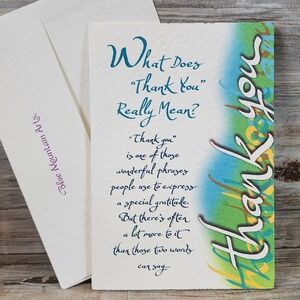 What Does
"Thank You"
Really Mean?
"Thank you"
is one of those
wonderful phrases
people use to express
a special gratitude.
But there's often
a lot more to it
than those two words
can say...
thank you
Blue Mountain Arts.